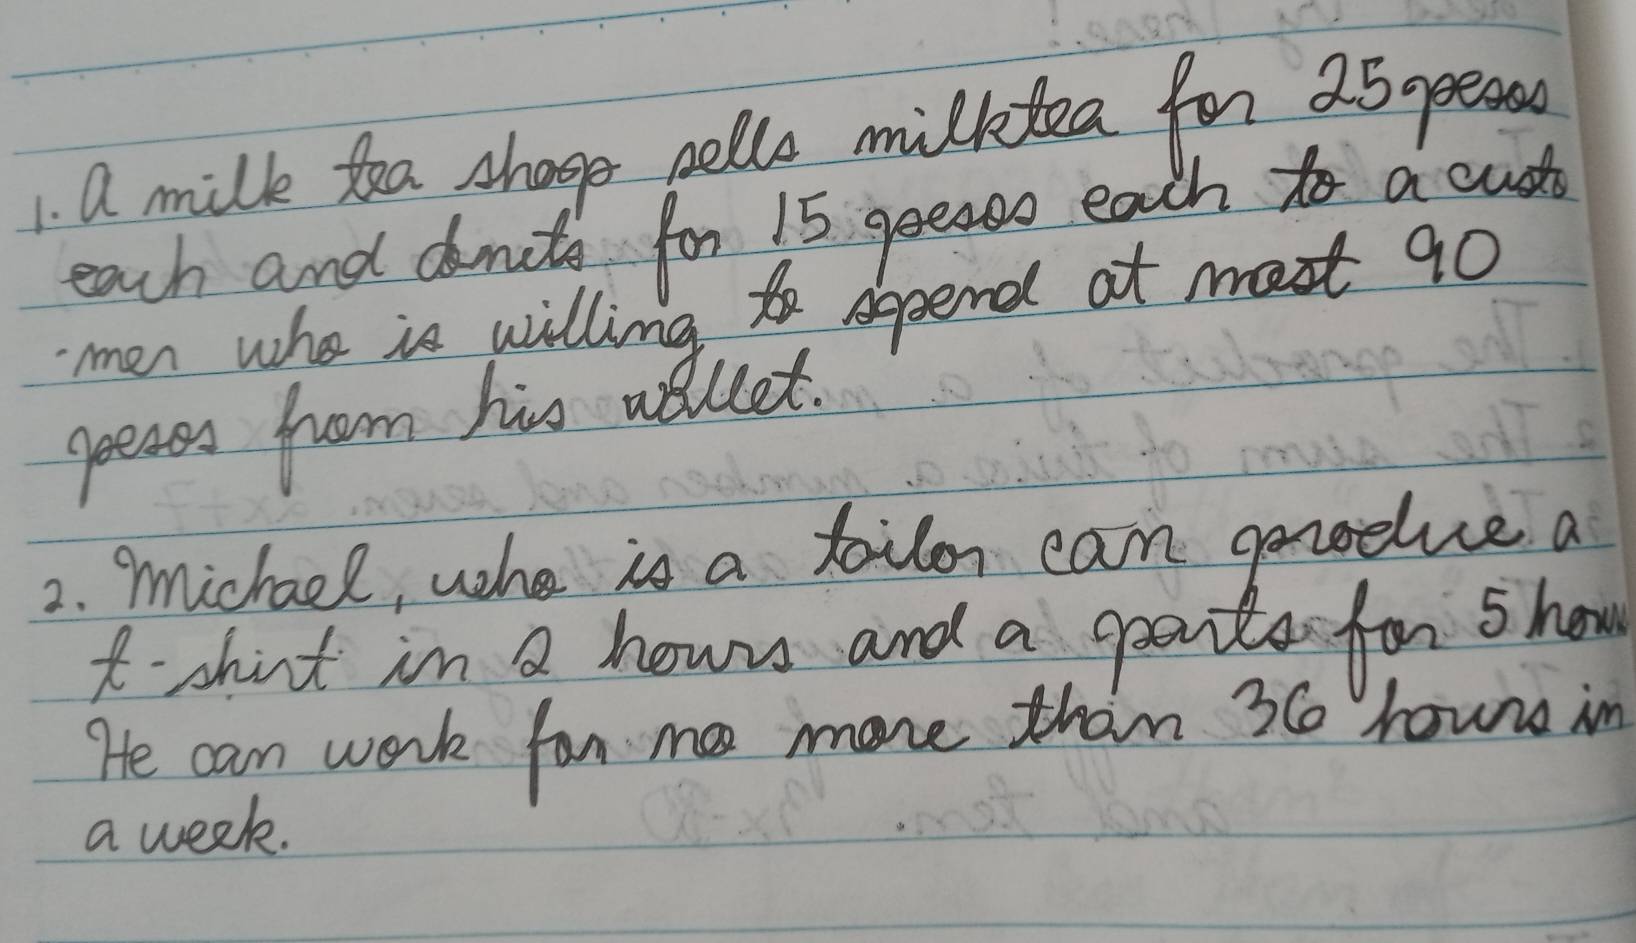 1. A milk tea shop sells milktea for 25 pesos
each and donuts for 15 pesos each to a custo
-mer who is willing to spend at most 90
pesos from his wallet.
2. Michael, who is a tailor can produce a
t-shirt in 2 hours and a pants for 5 hours
He can work for no more than 36 hours in
a week.